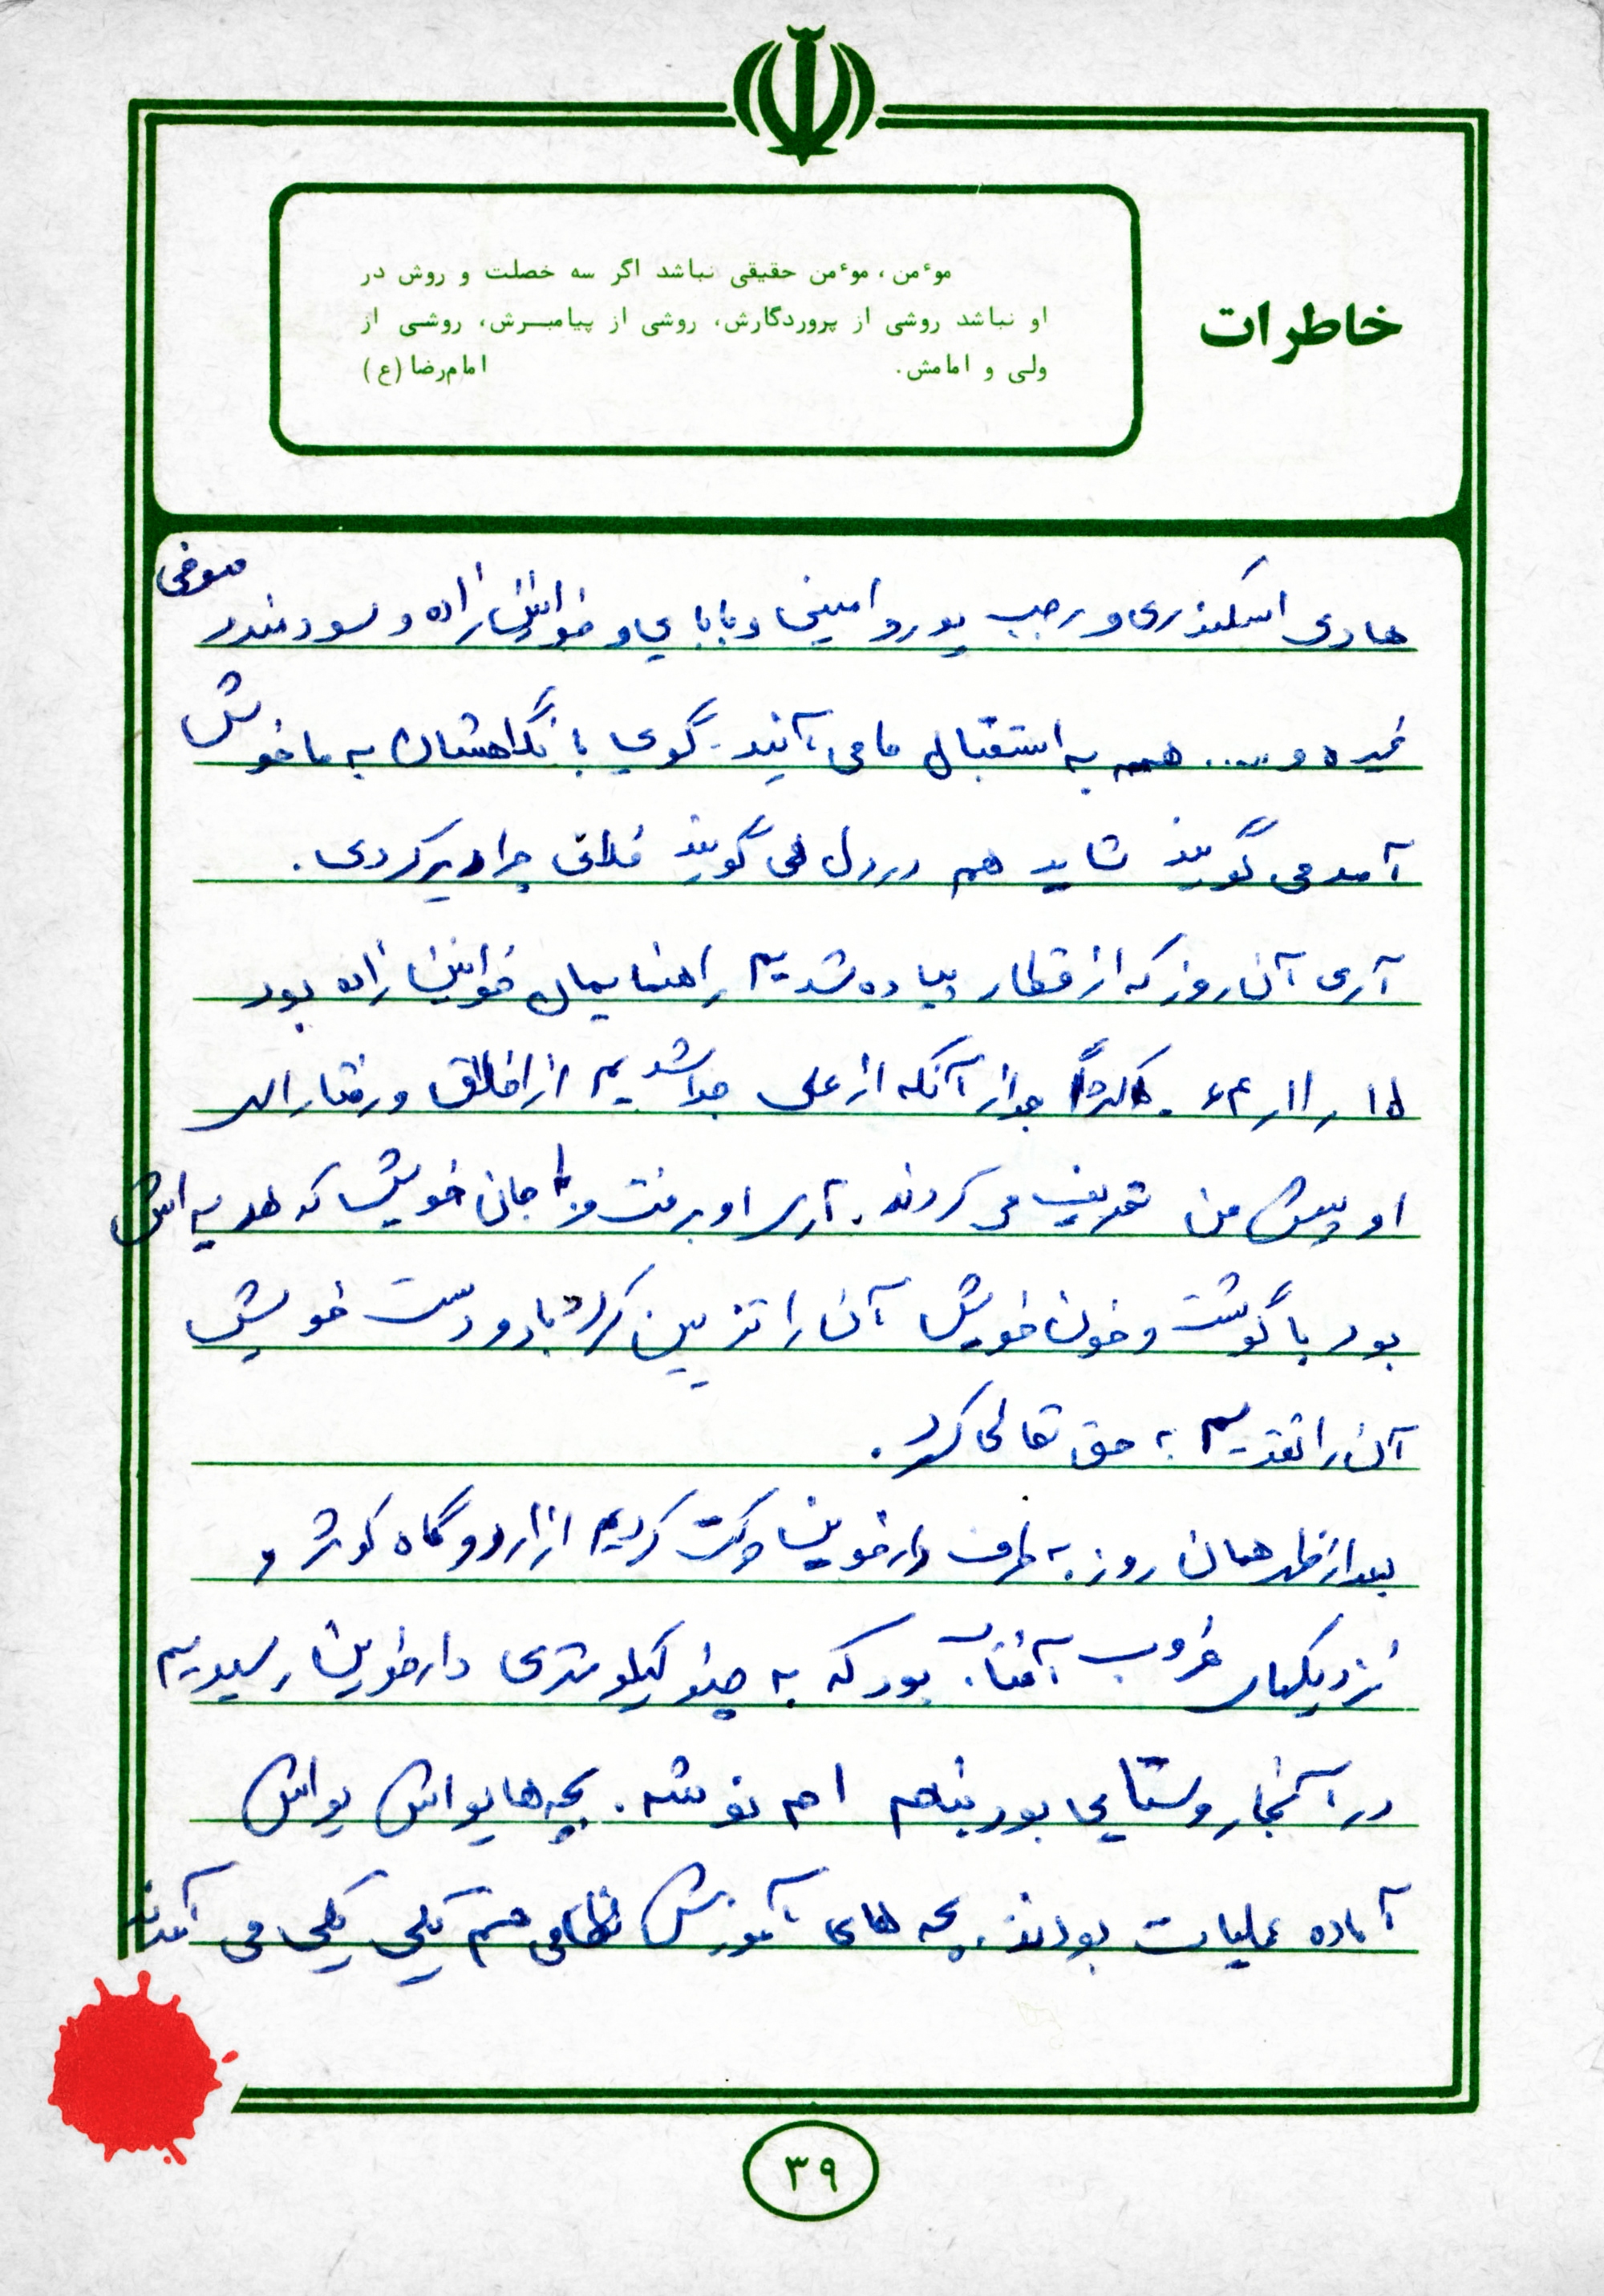 خاطرات
موءمن، موءمن حقیقی نباشد اگر سه خصلت و روش در
او نباشد روشی از پروردگارش، روشی از پیامبرش، روشی از
ولی و امامش. امام‌رضا (ع)
هادی اسکندری و رجب پور و امینی و بابایی و خوانین زاده و سودمند
غیره و ..... همه به استقبال ما می آیند. گویی با نگاهشان به ما خوش
آمد می گویند شاید هم در دل می گویند فلانی چرا دیر کردی.
آری آن روز که از قطار پیاده شدیم راهنمایمان خوانین زاده بود
۱۵ ر ۱۱ ر ۶۴ . بعد از آنکه از علی جدا شدیم از اخلاق و رفتار
او پیش من تعریف می کردند. آری او برفت و با جان خویش که هدیه اش
بود با گوشت و خون خویش آن را تزیین کرد با دو دست خویش
آن را تقدیم به حق تعالی کرد.
بعد از ظهر همان روز به طرف دارخوین حرکت کردیم از اردوگاه کوثر و
نزدیکهای غروب آفتاب بود که به چند کیلومتری دارخوین رسیدیم
در آنجا روستایی بود بنام ام نوشه. بچه ها یواش یواش
آماده عملیات بودند. بچه های آموزش نظامی هم یکی یکی می آمدند
۳۹